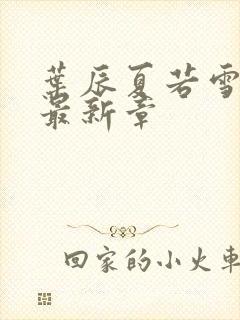 葉辰夏若雪
最新章
回家的小火車